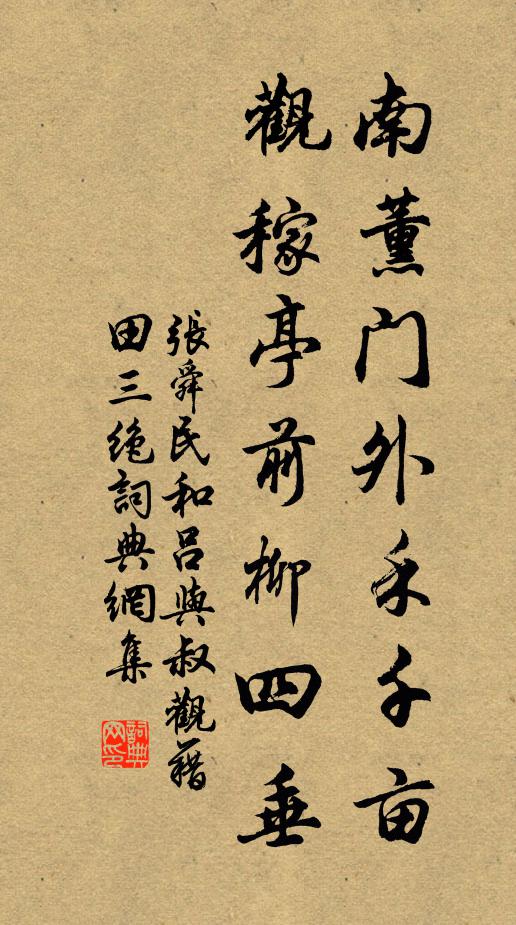 南薰门外禾千亩
觀稼亭前柳四垂
張舜民和呂與叔觀藉
田三绝詞典網集
詞典网印